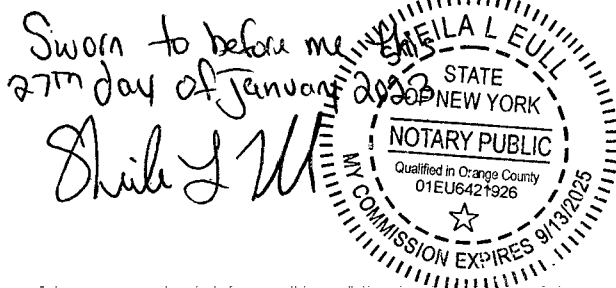 Sworn to before me this
27th day of January 2023
Sheila L Eull
SHEILA L EULL
STATE
OF NEW YORK
NOTARY PUBLIC
Qualified in Orange County
01EU6421926
MY COMMISSION EXPIRES 9/13/2025